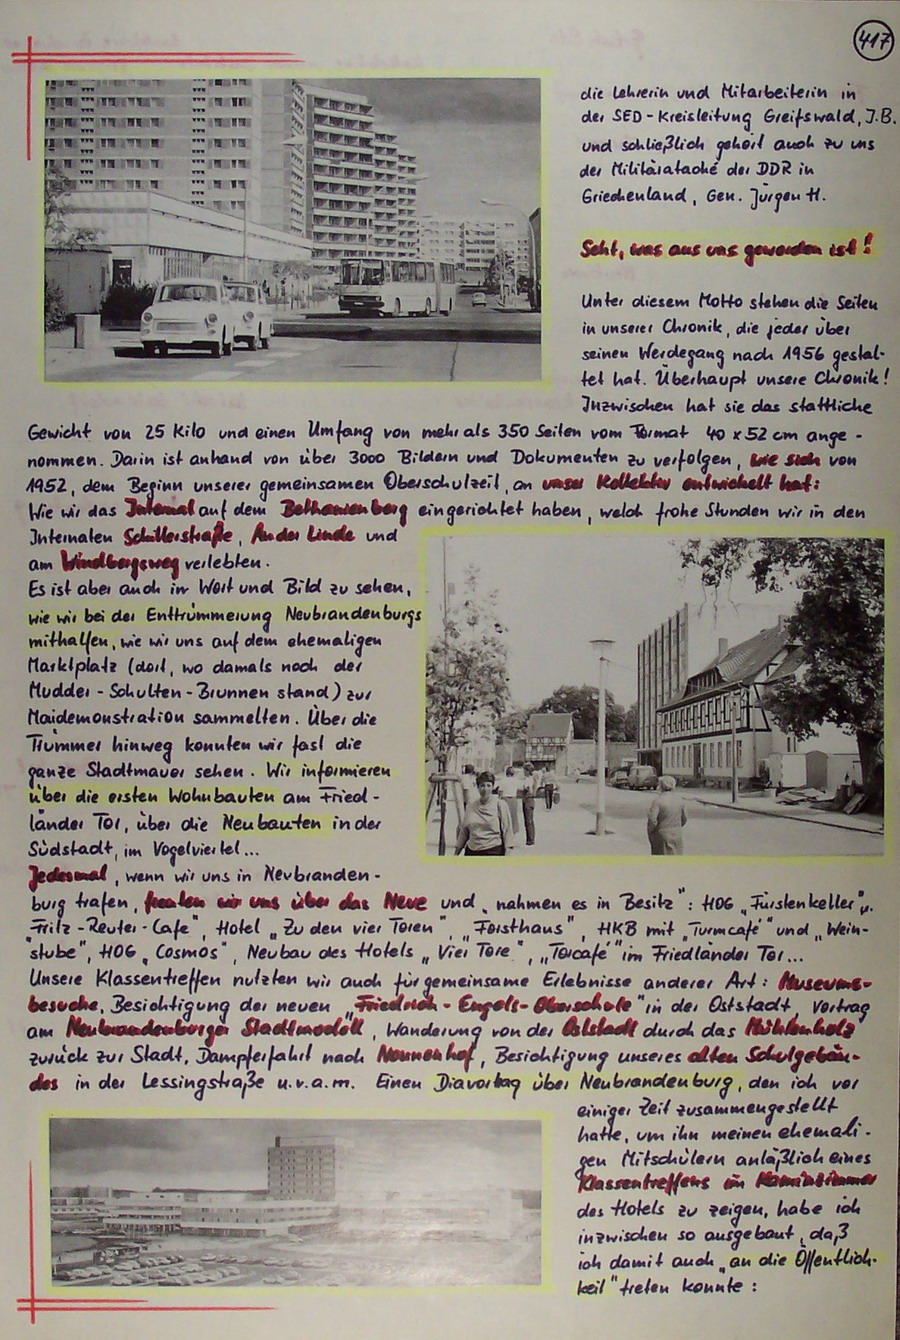 417
die Lehrerin und Mitarbeiterin in
der SED-Kreisleitung Greifswald, I.B.
und schließlich gehört auch zu uns
der Militärataché der DDR in
Griechenland, Gen. Jürgen H.
Seht, was aus uns geworden ist!
Unter diesem Motto stehen die Seiten
in unserer Chronik, die jeder über
seinen Werdegang nach 1956 gestal-
tet hat. Überhaupt unsere Chronik!
Inzwischen hat sie das stattliche
Gewicht von 25 Kilo und einen Umfang von mehr als 350 Seiten vom Format 40 x 52 cm ange-
nommen. Darin ist anhand von über 3000 Bildern und Dokumenten zu verfolgen, wie sich von
1952, dem Beginn unserer gemeinsamen Oberschulzeit, an unser Kollektiv entwickelt hat:
Wie wir das Internat auf dem Bethanienberg eingerichtet haben, welch frohe Stunden wir in den
Internaten Schillerstraße, An der Linde und
am Windbergsweg verlebten.
Es ist aber auch in Wort und Bild zu sehen,
wie wir bei der Enttrümmerung Neubrandenburgs
mithalfen, wie wir uns auf dem ehemaligen
Marktplatz (dort, wo damals noch der
Mudder-Schulten-Brunnen stand) zur
Maidemonstration sammelten. Über die
Trümmer hinweg konnten wir fast die
ganze Stadtmauer sehen. Wir informieren
über die ersten Wohnbauten am Fried-
länder Tor, über die Neubauten in der
Südstadt, im Vogelviertel...
Jedesmal, wenn wir uns in Neubranden-
burg trafen, freuten wir uns über das Neue und „nahmen es in Besitz": HOG „Fürstenkeller",
Fritz-Reuter-Café", Hotel „Zu den vier Toren", „Forsthaus", HKB mit „Turmcafé" und „Wein-
stube", HOG „Cosmos", Neubau des Hotels „Vier Tore", „Torcafé" im Friedländer Tor...
Unsere Klassentreffen nutzten wir auch für gemeinsame Erlebnisse anderer Art: Museums-
besuche, Besichtigung der neuen „Friedrich-Engels-Oberschule" in der Oststadt, Vortrag
am Neubrandenburger Stadtmodell, Wanderung von der Oststadt durch das Mühlenholz
zurück zur Stadt, Dampferfahrt nach Nonnenhof, Besichtigung unseres alten Schulgebäu-
des in der Lessingstraße u.v.a.m. Einen Diavortrag über Neubrandenburg, den ich vor
einiger Zeit zusammengestellt
hatte, um ihn meinen ehemali-
gen Mitschülern anläßlich eines
Klassentreffens im Kaminzimmer
des Hotels zu zeigen, habe ich
inzwischen so ausgebaut, daß
ich damit auch „an die Öffentlich-
keit" treten konnte: